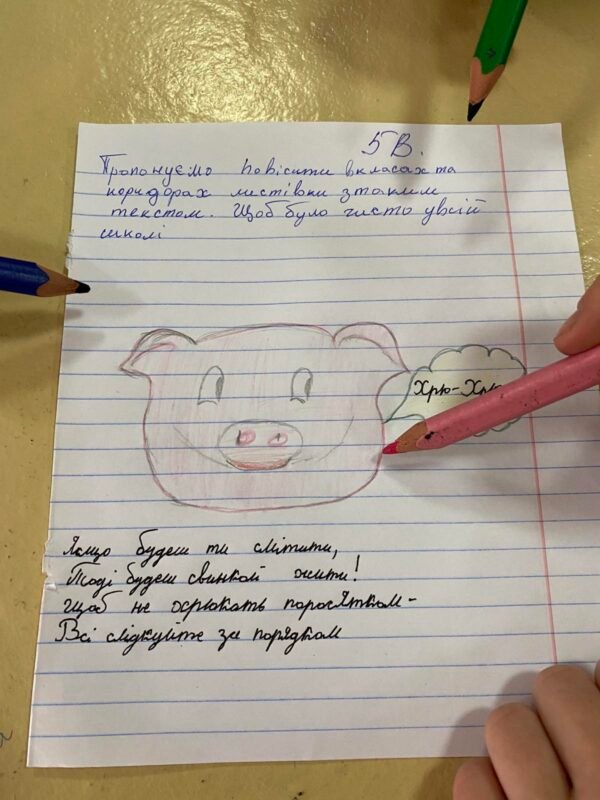 5 В.
Пропонуємо повісити в класах та
коридорах листівки з таким
текстом. Щоб було чисто у всій
школі
Хрю-Хрю
Якщо будеш ти смітити,
Тоді будеш свинкой жити!
Щоб не охрюкать поросятком-
Всі слідкуйте за порядком